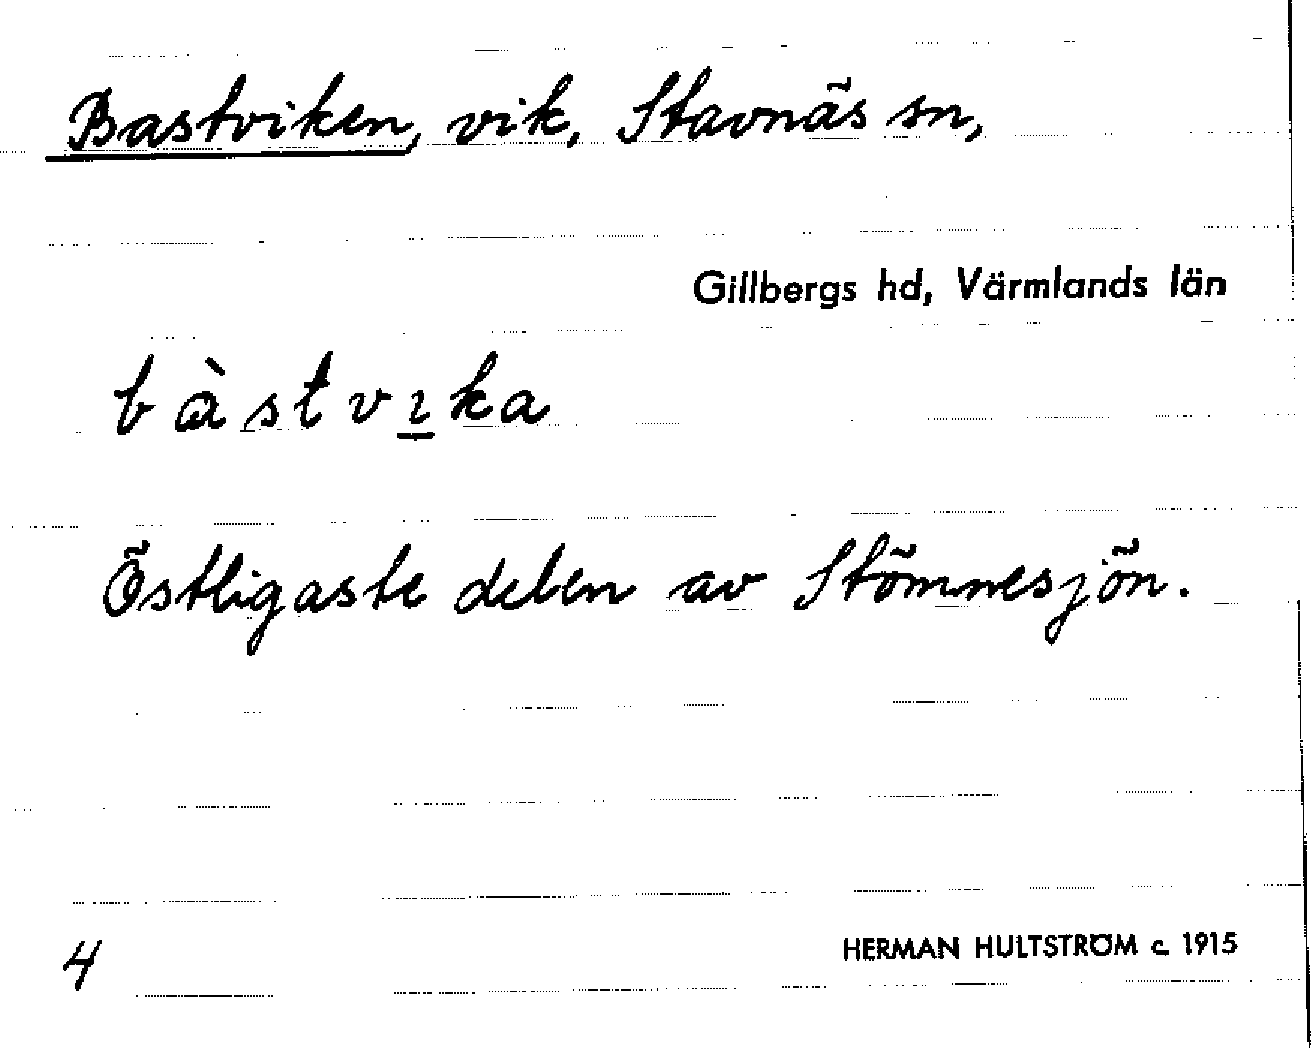 Bastviken, vik, Stavnäs sn,
Gillbergs hd, Värmlands län
bàstvıka
Östligaste delen av Stömnesjön.
4
HERMAN HULTSTRÖM c. 1915